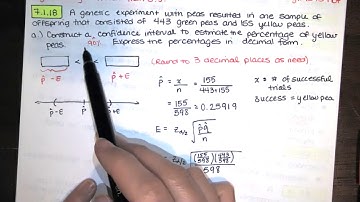 7.1.18 A genetic experiment with peas resulted in one sample of
offspring that consisted of 443 green peas and 155 yellow peas.
a.) Construct a 90% confidence interval to estimate the percentage of yellow
peas. Express the percentages in decimal form.
< <
(Round to 3 decimal places as need)
p̂-E p̂+E
p̂ = x/n = 155/443+155
x = # of successful trials
= 155/598 = 0.25919
success = yellow pea
p̂-E p̂ p̂+E
E = Zα/2 √p̂q̂/n
= Zα/2 √(155/598)(443/598)
598